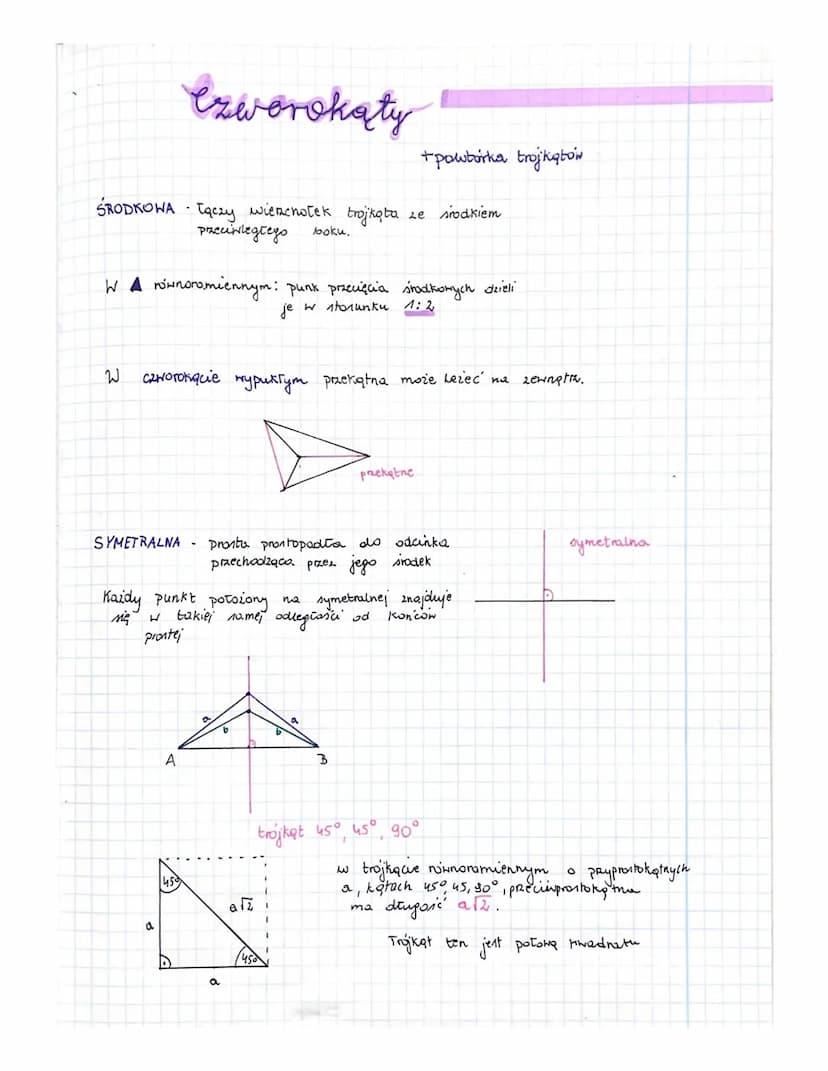 Czworokąty
+powtórka trojkątów
ŚRODKOWA - łączy wierzchołek trojkąta ze środkiem
przeciwległego boku.
W ▲ równoramiennym: punk przecięcia środkowych dzieli
je w stosunku 1:2
W czworokącie wypukłym przekątna może leżeć na zewnątrz.
przekątne
SYMETRALNA - prosta prostopadła do odcinka
przechodząca przez jego środek
symetralna
Każdy punkt położony na symetralnej znajduje
się w takiej samej odległości od końców
prostej
a a
b b
A B
trójkąt 45°, 45°, 90°
45°
a√2
a
45°
a
w trójkącie równoramiennym o przyprostokątnych
a, kątach 45°, 45, 90°, przeciwprostokątna
ma długość a√2.
Trójkąt ten jest połową kwadratu